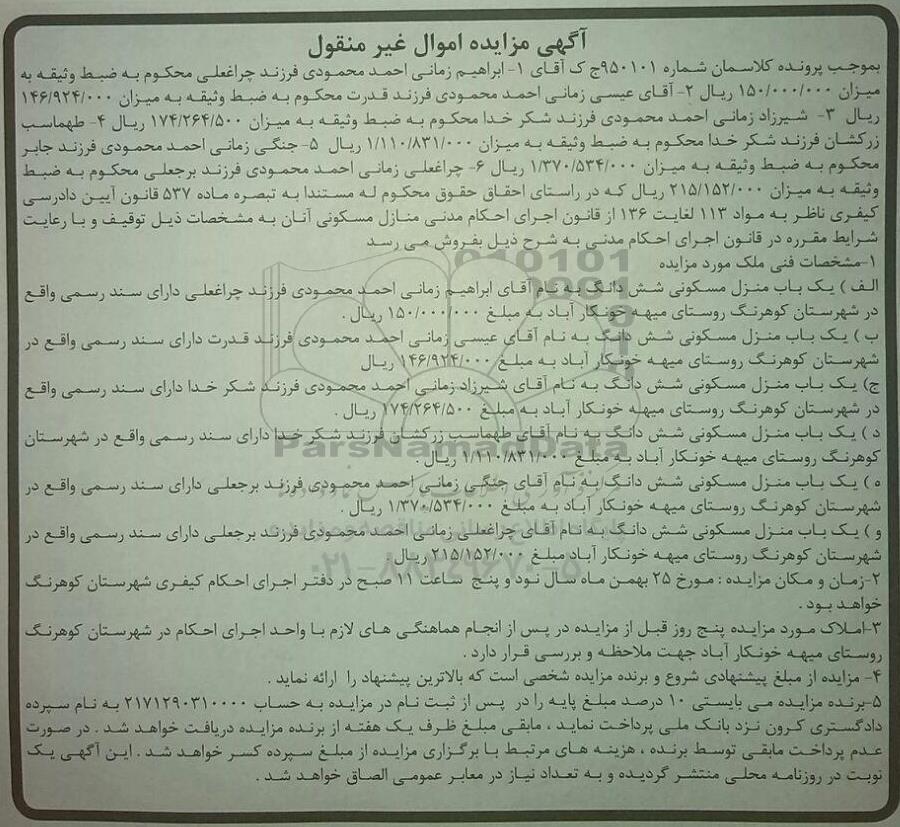 آگهی مزایده اموال غیر منقول
بموجب پرونده کلاسمان شماره ۹۵۰۱۰۱ج ک آقای ۱- ابراهیم زمانی احمد محمودی فرزند چراغعلی محکوم به ضبط وثیقه به
میزان ۱۵۰/۰۰۰/۰۰۰ ریال ۲- آقای عیسی زمانی احمد محمودی فرزند قدرت محکوم به ضبط وثیقه به میزان ۱۴۶/۹۲۴/۰۰۰
ریال ۳- شیرزاد زمانی احمد محمودی فرزند شکر خدا محکوم به ضبط وثیقه به میزان ۱۷۴/۲۶۴/۵۰۰ ریال ۴- طهماسب
زرکشان فرزند شکر خدا محکوم به ضبط وثیقه به میزان ۱/۱۱۰/۸۳۱/۰۰۰ ریال ۵- جنگی زمانی احمد محمودی فرزند جابر
محکوم به ضبط وثیقه به میزان ۱/۳۷۰/۵۳۴/۰۰۰ ریال ۶- چراغعلی زمانی احمد محمودی فرزند برجعلی محکوم به ضبط
وثیقه به میزان ۲۱۵/۱۵۲/۰۰۰ ریال که در راستای احقاق حقوق محکوم له مستندا به تبصره ماده ۵۳۷ قانون آیین دادرسی
کیفری ناظر به مواد ۱۱۳ لغایت ۱۳۶ از قانون اجرای احکام مدنی منازل مسکونی آنان به مشخصات ذیل توقیف و با رعایت
شرایط مقرره در قانون اجرای احکام مدنی به شرح ذیل بفروش می رسد
۱-مشخصات فنی ملک مورد مزایده
الف ) یک باب منزل مسکونی شش دانگ به نام آقای ابراهیم زمانی احمد محمودی فرزند چراغعلی دارای سند رسمی واقع
در شهرستان کوهرنگ روستای میهه خونکار آباد به مبلغ ۱۵۰/۰۰۰/۰۰۰ ریال .
ب ) یک باب منزل مسکونی شش دانگ به نام آقای عیسی زمانی احمد محمودی فرزند قدرت دارای سند رسمی واقع در
شهرستان کوهرنگ روستای میهه خونکار آباد به مبلغ ۱۴۶/۹۲۴/۰۰۰ ریال
ج) یک باب منزل مسکونی شش دانگ به نام آقای شیرزاد زمانی احمد محمودی فرزند شکر خدا دارای سند رسمی واقع
در شهرستان کوهرنگ روستای میهه خونکار آباد به مبلغ ۱۷۴/۲۶۴/۵۰۰ ریال .
د ) یک باب منزل مسکونی شش دانگ به نام آقای طهماسب زرکشان فرزند شکر خدا دارای سند رسمی واقع در شهرستان
کوهرنگ روستای میهه خونکار آباد به مبلغ ۱/۱۱۰/۸۳۱/۰۰۰ ریال .
ه ) یک باب منزل مسکونی شش دانگ به نام آقای جنگی زمانی احمد محمودی فرزند برجعلی دارای سند رسمی واقع در
شهرستان کوهرنگ روستای میهه خونکار آباد به مبلغ ۱/۳۷۰/۵۳۴/۰۰۰ ریال .
و ) یک باب منزل مسکونی شش دانگ به نام آقای چراغعلی زمانی احمد محمودی فرزند برجعلی دارای سند رسمی واقع در
شهرستان کوهرنگ روستای میهه خونکار آباد مبلغ ۲۱۵/۱۵۲/۰۰۰ ریال
۲-زمان و مکان مزایده : مورخ ۲۵ بهمن ماه سال نود و پنج ساعت ۱۱ صبح در دفتر اجرای احکام کیفری شهرستان کوهرنگ
خواهد بود .
۳-املاک مورد مزایده پنج روز قبل از مزایده در پس از انجام هماهنگی های لازم با واحد اجرای احکام در شهرستان کوهرنگ
روستای میهه خونکار آباد جهت ملاحظه و بررسی قرار دارد .
۴- مزایده از مبلغ پیشنهادی شروع و برنده مزایده شخصی است که بالاترین پیشنهاد را ارائه نماید .
۵-برنده مزایده می بایستی ۱۰ درصد مبلغ پایه را در پس از ثبت نام در مزایده به حساب ۲۱۷۱۲۹۰۳۱۰۰۰۰ به نام سپرده
دادگستری کرون نزد بانک ملی پرداخت نماید ، مابقی مبلغ ظرف یک هفته از برنده مزایده دریافت خواهد شد . در صورت
عدم پرداخت مابقی توسط برنده ، هزینه های مرتبط با برگزاری مزایده از مبلغ سپرده کسر خواهد شد . این آگهی یک
نوبت در روزنامه محلی منتشر گردیده و به تعداد نیاز در معابر عمومی الصاق خواهد شد .
ParsNamadData
۰۲۱-۸۸۳۴۹۶۷۰-۵